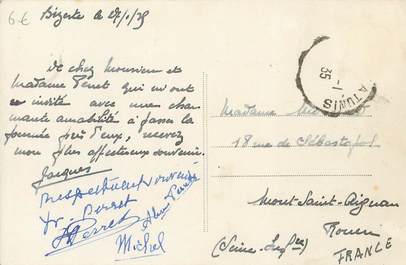 6€
Bizerte le 27/1/35
De chez Monsieur et
Madame Perret qui m'ont
invité avec une char
mante amabilité à passer la
journée près d'eux, recevez
mon plus affectueux souvenir.
Jacques
respectueux souvenir
Perret
Perret
Michel
A TUNIS
1-
35
Madame
18 rue de Sébastopol
Mont-Saint-Aignan
Rouen
(Seine-Infre)
FRANCE